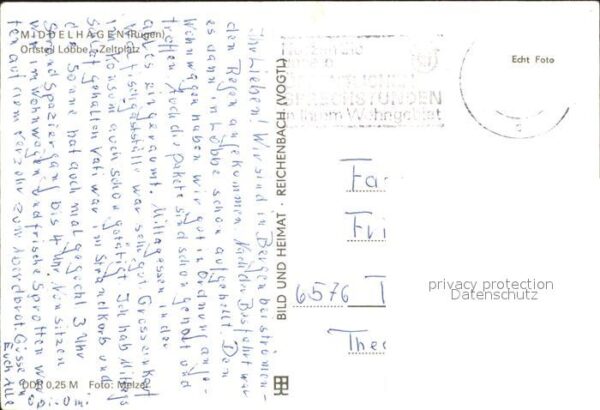 MIDDELHAGEN (Rügen)
Ortsteil Lobbe, Zeltplatz
Echt Foto
SPRECHSTUNDEN
in Ihrem Wohngebiet
BILD UND HEIMAT · REICHENBACH (VOGTL)
Ihr Lieben! Wir sind in Bergen bei strömen-
den Regen angekommen. Nach der Busfahrt war
es dann in Lobbe schon aufgehellt. Den
Wohnwagen haben wir gut in Ordnung ange-
troffen. Auch die Pakete sind schon geholt und
alles eingeräumt. Mittagessen in der
Gaststätte war sehr gut Grosseinkauf
im Konsum auch schon getätigt. Ich hab Mittags
Schlaf gehalten Vati war im Strandkorb und
die Sonne hat auch mal geguckt 3 Uhr
Strandspaziergang bis 4 Uhr. Nun sitzen
wir im Wohnwagen und frische Sprotten war-
ten auf zum Abendbrot Grüsse an
Euch Alle
Opi · Omi
Fa
Fri
6576 T
Theo
privacy protection
Datenschutz
DDR 0,25 M Foto: Melzer